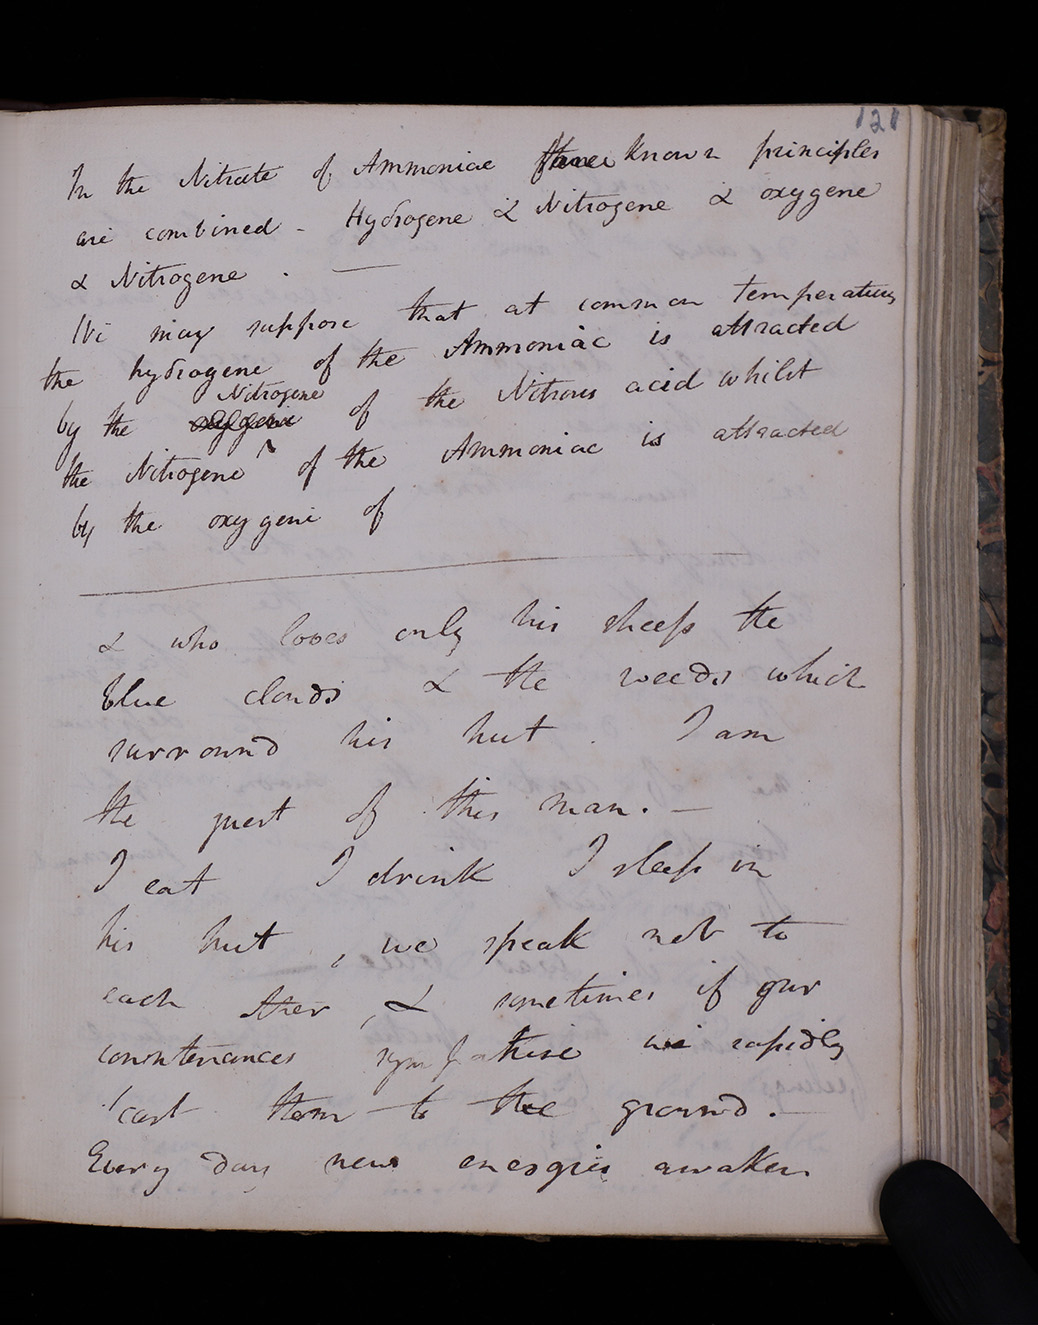 121
In the Nitrate of Ammoniac three known principles
are combined - Hydrogene & Nitrogene & oxygene
& Nitrogene . —
We may suppose that at common temperatures
the hydrogene of the Ammoniac is attracted
Nitrogene
by the oxygene of the Nitrous acid whilst
the Nitrogene ^ of the Ammoniac is attracted
by the oxygene of
& who loves only his sheep the
blue clouds & the weeds which
surround his hut . I am
the guest of this man. —
I eat I drink I sleep in
his hut , we speak not to
each other , & sometimes if our
countenances sympathise we rapidly
cast them to the ground .
Every day new energies awaken